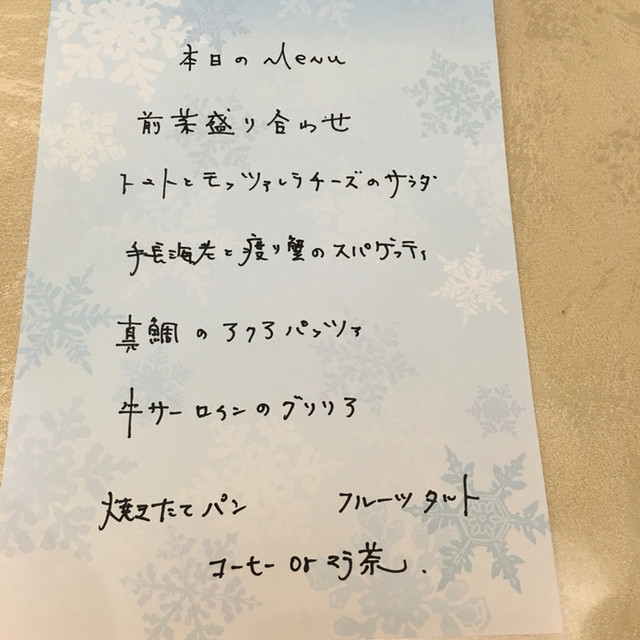 本日の Menu
前菜盛り合わせ
トマトとモッツァレラチーズのサラダ
手長海老と渡り蟹のスパゲッティ
真鯛のアクアパッツァ
牛サーロインのグリリア
焼きたてパン フルーツタルト
コーヒー or 紅茶.